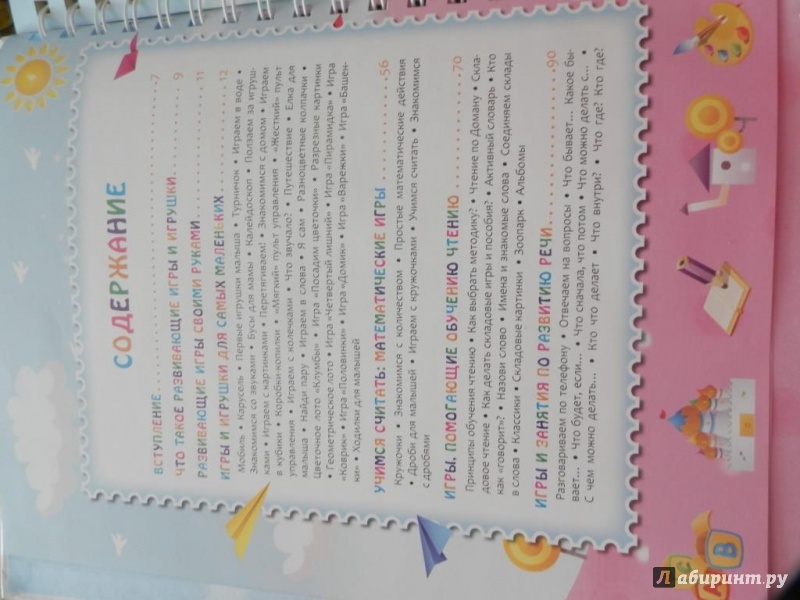 СОДЕРЖАНИЕ
ВСТУПЛЕНИЕ . . . . . . . . . . . . . . . . . . . . . . . . . . . . 7
ЧТО ТАКОЕ РАЗВИВАЮЩИЕ ИГРЫ И ИГРУШКИ . . . . . . . . . . . 9
РАЗВИВАЮЩИЕ ИГРЫ СВОИМИ РУКАМИ . . . . . . . . . . . . . 11
ИГРЫ И ИГРУШКИ ДЛЯ САМЫХ МАЛЕНЬКИХ . . . . . . . . . . . 12
Мобиль • Карусель • Первые игрушки малыша • Турничок • Играем в воде •
Знакомимся со звуками • Бусы для мамы • Калейдоскоп • Ползаем за игруш-
ками • Играем с картинками • Перетягиваем! • Знакомимся с домом • Играем
в кубики • Коробки-копилки • «Мягкий» пульт управления • «Жесткий» пульт
управления • Играем с колечками • Что звучало? • Путешествие • Елка для
малыша • Найди пару • Играем в слова • Я сам • Разноцветные колпачки •
Цветочное лото «Клумбы» • Игра «Посадим цветочки» • Разрезные картинки
• Геометрическое лото • Игра «Четвертый лишний» • Игра «Пирамидка» • Игра
«Коврик» • Игра «Половинки» • Игра «Домик» • Игра «Варежки» • Игра «Башен-
ки» • Ходилки для малышей
УЧИМСЯ СЧИТАТЬ: МАТЕМАТИЧЕСКИЕ ИГРЫ . . . . . . . . . . . 56
Кружочки • Знакомимся с количеством • Простые математические действия
• Дроби для малышей • Играем с кружочками • Учимся считать • Знакомимся
с дробями
ИГРЫ, ПОМОГАЮЩИЕ ОБУЧЕНИЮ ЧТЕНИЮ . . . . . . . . . . . . 70
Принципы обучения чтению • Как выбрать методику? • Чтение по Доману • Скла-
довое чтение • Как делать складовые игры и пособия? • Активный словарь • Кто
как «говорит»? • Назови слово • Имена и знакомые слова • Соединяем склады
в слова • Классики • Складовые картинки • Зоопарк • Альбомы
ИГРЫ И ЗАНЯТИЯ ПО РАЗВИТИЮ РЕЧИ . . . . . . . . . . . . . . 90
Разговариваем по телефону • Отвечаем на вопросы • Что бывает... Какое бы-
вает... • Что будет, если... • Что сначала, что потом • Что можно делать с... •
С чем можно делать... • Кто что делает • Что внутри? • Что где? Кто где?
А
Б
В
Лабиринт.ру